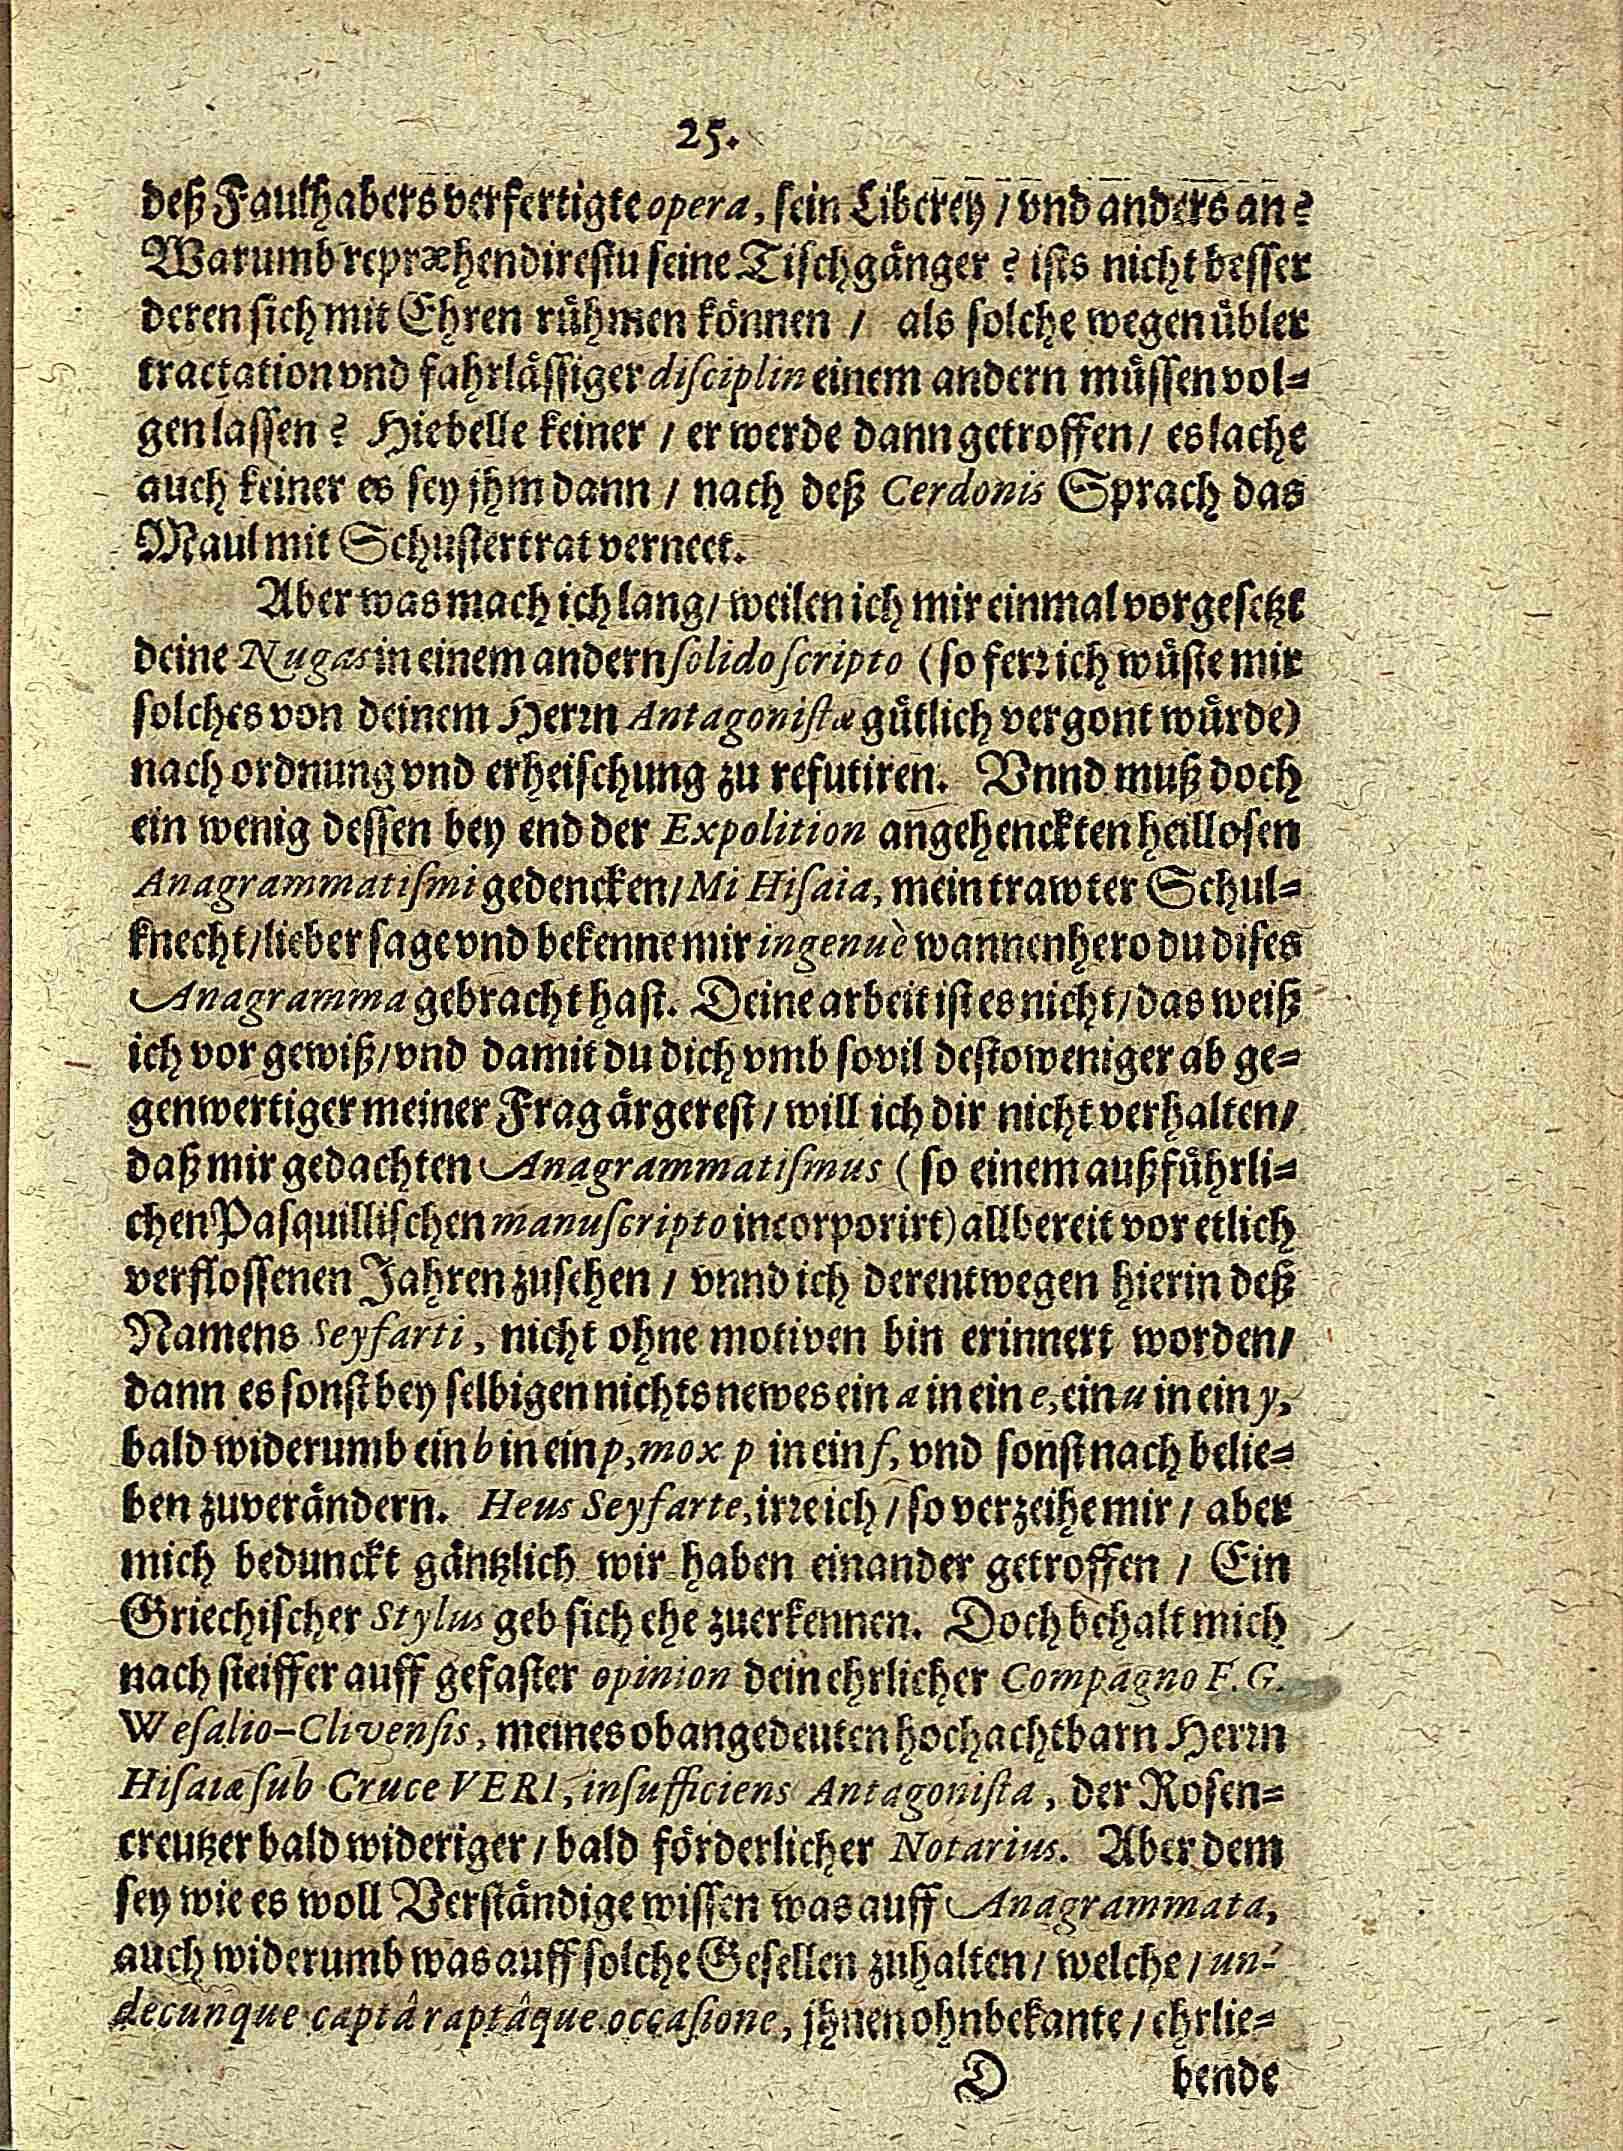 25.
deß Faulhabers verfertigte opera, sein Liberey / vnd anders an?
Warumb repræhendirestu seine Tischgänger? ists nicht besser
deren sich mit Ehren rühmen können / als solche wegen übler
tractation vnd fahrlässiger disciplin einem andern müssen vol=
gen lassen? Hiebelle keiner / er werde dann getroffen / es lache
auch keiner es sey jhm dann / nach deß Cerdonis Sprach das
Maul mit Schustertrat verneet.
Aber was mach ich lang / weilen ich mir einmal vorgesetzt
deine Nugas in einem andern solido scripto (so ferr ich wüste mir
solches von deinem Herrn Antagonistæ gütlich vergont würde)
nach ordnung vnd erheischung zu refutiren. Vnnd muß doch
ein wenig dessen bey end der Expolition angehenckten heillosen
Anagrammatismi gedencken / Mi Hisaia, mein trawter Schul=
knecht / lieber sage vnd bekenne mir ingenuè wannenhero du dises
Anagramma gebracht hast. Deine arbeit ist es nicht / das weiß
ich vor gewiß / vnd damit du dich vmb sovil destoweniger ab ge=
genwertiger meiner Frag ärgerest / will ich dir nicht verhalten /
daß mir gedachten Anagrammatismus (so einem außführli=
chen Pasquillischen manuscripto incorporirt) allbereit vor etlich
verflossenen Jahren zusehen / vnnd ich derentwegen hierin deß
Namens Seyfarti, nicht ohne motiven bin erinnert worden /
dann es sonst bey selbigen nichts newes ein a in ein e, ein u in ein y,
bald widerumb ein b in ein p, mox p in ein f, vnd sonst nach belie=
ben zuverändern. Heus Seyfarte, irre ich / so verzeihe mir / aber
mich bedunckt gäntzlich wir haben einander getroffen / Ein
Griechischer Stylus geb sich ehe zuerkennen. Doch behalt mich
nach steiffer auff gefaster opinion dein ehrlicher Compagno F. G.
Wesalio-Clivensis, meines obangedeuten hochachtbarn Herrn
Hisaiæ sub Cruce VERI, insufficiens Antagonista, der Rosen=
creutzer bald wideriger / bald förderlicher Notarius. Aber dem
sey wie es woll Verständige wissen was auff Anagrammata,
auch widerumb was auff solche Gesellen zuhalten / welche / un-
decunque captâ raptâque occasione, jhnen ohnbekante / ehrlie=
D bende